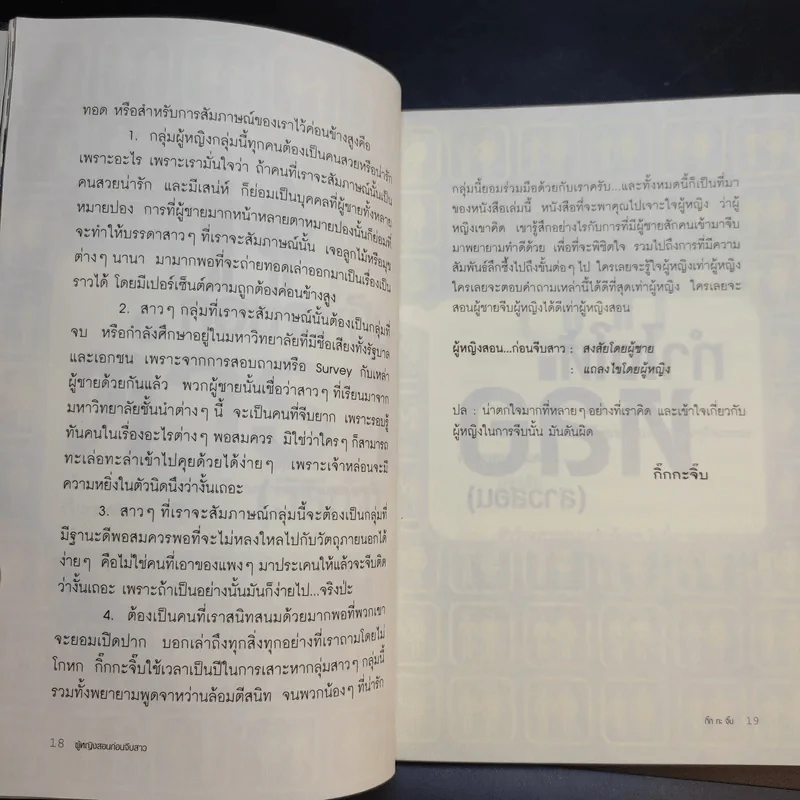 ทอด หรือสำหรับการสัมภาษณ์ของเราไว้ค่อนข้างสูงคือ
1. กลุ่มผู้หญิงกลุ่มนี้ทุกคนต้องเป็นคนสวยหรือน่ารัก
เพราะอะไร เพราะเรามั่นใจว่า ถ้าคนที่เราจะสัมภาษณ์นั้นเป็น
คนสวยน่ารัก และมีเสน่ห์ ก็ย่อมเป็นบุคคลที่ผู้ชายทั้งหลาย
หมายปอง การที่ผู้ชายมากหน้าหลายตาหมายปองนั้นก็ย่อมที่
จะทำให้บรรดาสาวๆ ที่เราจะสัมภาษณ์นั้น เจอลูกไม้หรือมุข
ต่างๆ นานา มามากพอที่จะถ่ายทอดเล่าออกมาเป็นเรื่องเป็น
ราวได้ โดยมีเปอร์เซ็นต์ความถูกต้องค่อนข้างสูง
2. สาวๆ กลุ่มที่เราจะสัมภาษณ์นั้นต้องเป็นกลุ่มที่
จบ หรือกำลังศึกษาอยู่ในมหาวิทยาลัยที่มีชื่อเสียงทั้งรัฐบาล
และเอกชน เพราะจากการสอบถามหรือ Survey กับเหล่า
ผู้ชายด้วยกันแล้ว พวกผู้ชายนั้นเชื่อว่าสาวๆ ที่เรียนมาจาก
มหาวิทยาลัยชั้นนำต่างๆ นี้ จะเป็นคนที่จีบยาก เพราะรอบรู้
ทันคนในเรื่องอะไรต่างๆ พอสมควร มิใช่ว่าใครๆ ก็สามารถ
ทะเล่อทะล่าเข้าไปคุยด้วยได้ง่ายๆ เพราะเจ้าหล่อนจะมี
ความหยิ่งในตัวนิดนึงว่างั้นเถอะ
3. สาวๆ ที่เราจะสัมภาษณ์กลุ่มนี้จะต้องเป็นกลุ่มที่
มีฐานะดีพอสมควรพอที่จะไม่หลงใหลไปกับวัตถุภายนอกได้
ง่ายๆ คือไม่ใช่คนที่เอาของแพงๆ มาประเคนให้แล้วจะจีบติด
ว่างั้นเถอะ เพราะถ้าเป็นอย่างนั้นมันก็ง่ายไป...จริงป่ะ
4. ต้องเป็นคนที่เราสนิทสนมด้วยมากพอที่พวกเขา
จะยอมเปิดปาก บอกเล่าถึงทุกสิ่งทุกอย่างที่เราถามโดยไม่
โกหก กิ๊กกะจิ๊บใช้เวลาเป็นปีในการเสาะหากลุ่มสาวๆ กลุ่มนี้
รวมทั้งพยายามพูดจาหว่านล้อมตีสนิท จนพวกน้องๆ ที่น่ารัก
18 ผู้หญิงสอนก่อนจีบสาว
กลุ่มนี้ยอมร่วมมือด้วยกับเราครับ...และทั้งหมดนี้ก็เป็นที่มา
ของหนังสือเล่มนี้ หนังสือที่จะพาคุณไปเจาะใจผู้หญิง ว่าผู้
หญิงเขาคิด เขารู้สึกอย่างไรกับการที่มีผู้ชายสักคนเข้ามาจีบ
มาพยายามทำดีด้วย เพื่อที่จะพิชิตใจ รวมไปถึงการที่มีความ
สัมพันธ์ลึกซึ้งไปถึงขั้นต่อๆ ไป ใครเลยจะรู้ใจผู้หญิงเท่าผู้หญิง
ใครเลยจะตอบคำถามเหล่านี้ได้ดีที่สุดเท่าผู้หญิง ใครเลยจะ
สอนผู้ชายจีบผู้หญิงได้ดีเท่าผู้หญิงสอน
ผู้หญิงสอน...ก่อนจีบสาว : สงสัยโดยผู้ชาย
: แถลงไขโดยผู้หญิง
ปล : น่าตกใจมากที่หลายๆ อย่างที่เราคิด และเข้าใจเกี่ยวกับ
ผู้หญิงในการจีบนั้น มันดันผิด
กิ๊กกะจิ๊บ
กิ๊ก กะ จิ๊บ 19